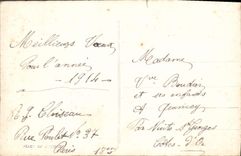 Meilleurs Vœux
Pour l'année
1914
Rue Poulet N° 34
Paris
Madame
Vve Boudin
et ses enfants
à Quincey
Par Nuits St Georges
Côte d'Or